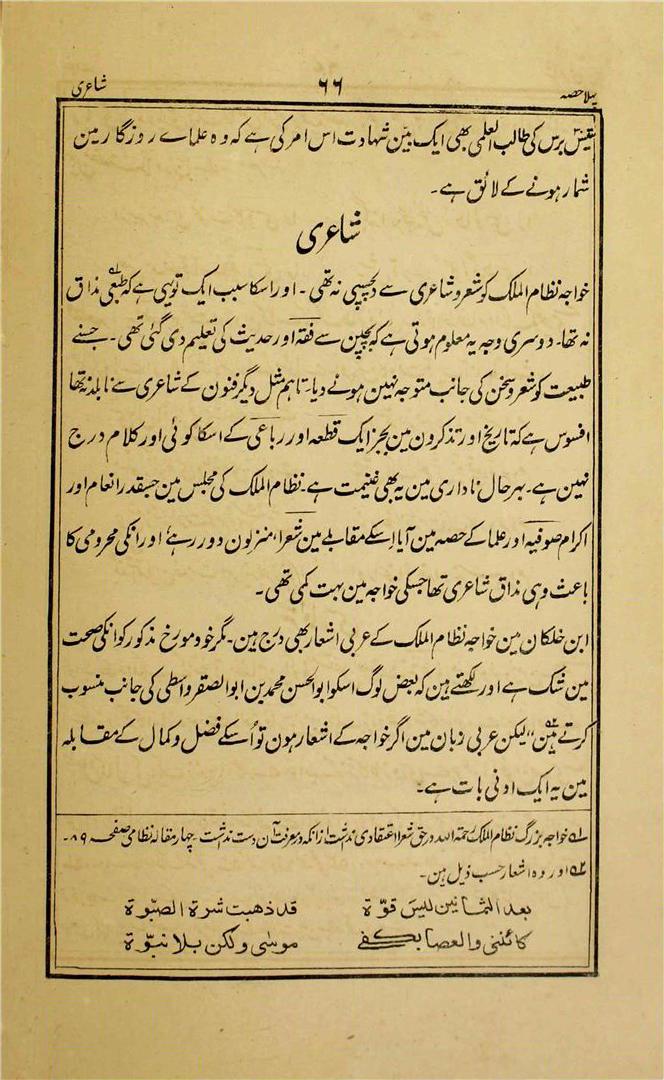 پہلا حصہ ۶۶ شاعری
تئیس برس کی طالب العلمی بھی ایک بین شہادت اس امر کی ہے کہ وہ علماے روزگار مین
شمار ہونے کے لائق ہے۔
شاعری
خواجہ نظام الملک کو شعر و شاعری سے دلچسپی نہ تھی۔ اور اسکا سبب ایک تو یہی ہے کہ طبعی مذاق
نہ تھا۔ دوسری وجہ یہ معلوم ہوتی ہے کہ بچپن سے فقہ اور حدیث کی تعلیم دی گئی تھی۔ جسنے
طبیعت کو شعر و سخن کی جانب متوجہ نہین ہونے دیا۔ تاہم مثل دیگر فنون کے شاعری سے نابلد نہ تھا
افسوس ہے کہ تاریخ اور تذکرون مین بجز ایک قطعہ اور رباعی کے اسکا کوئی اور کلام درج
نہین ہے۔ بہر حال ناداری مین یہ بھی غنیمت ہے۔ نظام الملک کی مجلس مین جسقدر انعام اور
اکرام صوفیہ اور علما کے حصہ مین آیا اِسکے مقابلے مین شعرا، منزلون دور رہے اور انکی محرومی کا
باعث وہی مذاق شاعری تھا جسکی خواجہ مین بہت کمی تھی۔
ابن خلکان مین خواجہ نظام الملک کے عربی اشعار بھی درج ہین۔ مگر خود مورخ مذکور کو انکی صحت
مین شک ہے اور لکھتے ہین کہ بعض لوگ اسکو ابو الحسن محمد بن ابو الصقر واسطی کی جانب منسوب
کرتے ہین٢ه،، لیکن عربی زبان مین اگر خواجہ کے اشعار ہون تو اُسکے فضل و کمال کے مقابلہ
مین یہ ایک ادنی بات ہے۔
١ه خواجہ بزرگ نظام الملک رحمۃ اللہ در حق شعرا اعتقادی نداشت از انکہ در معرفت آن دست نداشت۔ چہار مقالہ نظامی صفحہ ۸۹۔
٢ه اور وہ اشعار حسب ذیل ہین۔
بعد الثمانین لیس قوّة قد ذهبت شرة الصبّوة
کأننی والعصا بکفے موسٰی ولکن بلا نبوّة